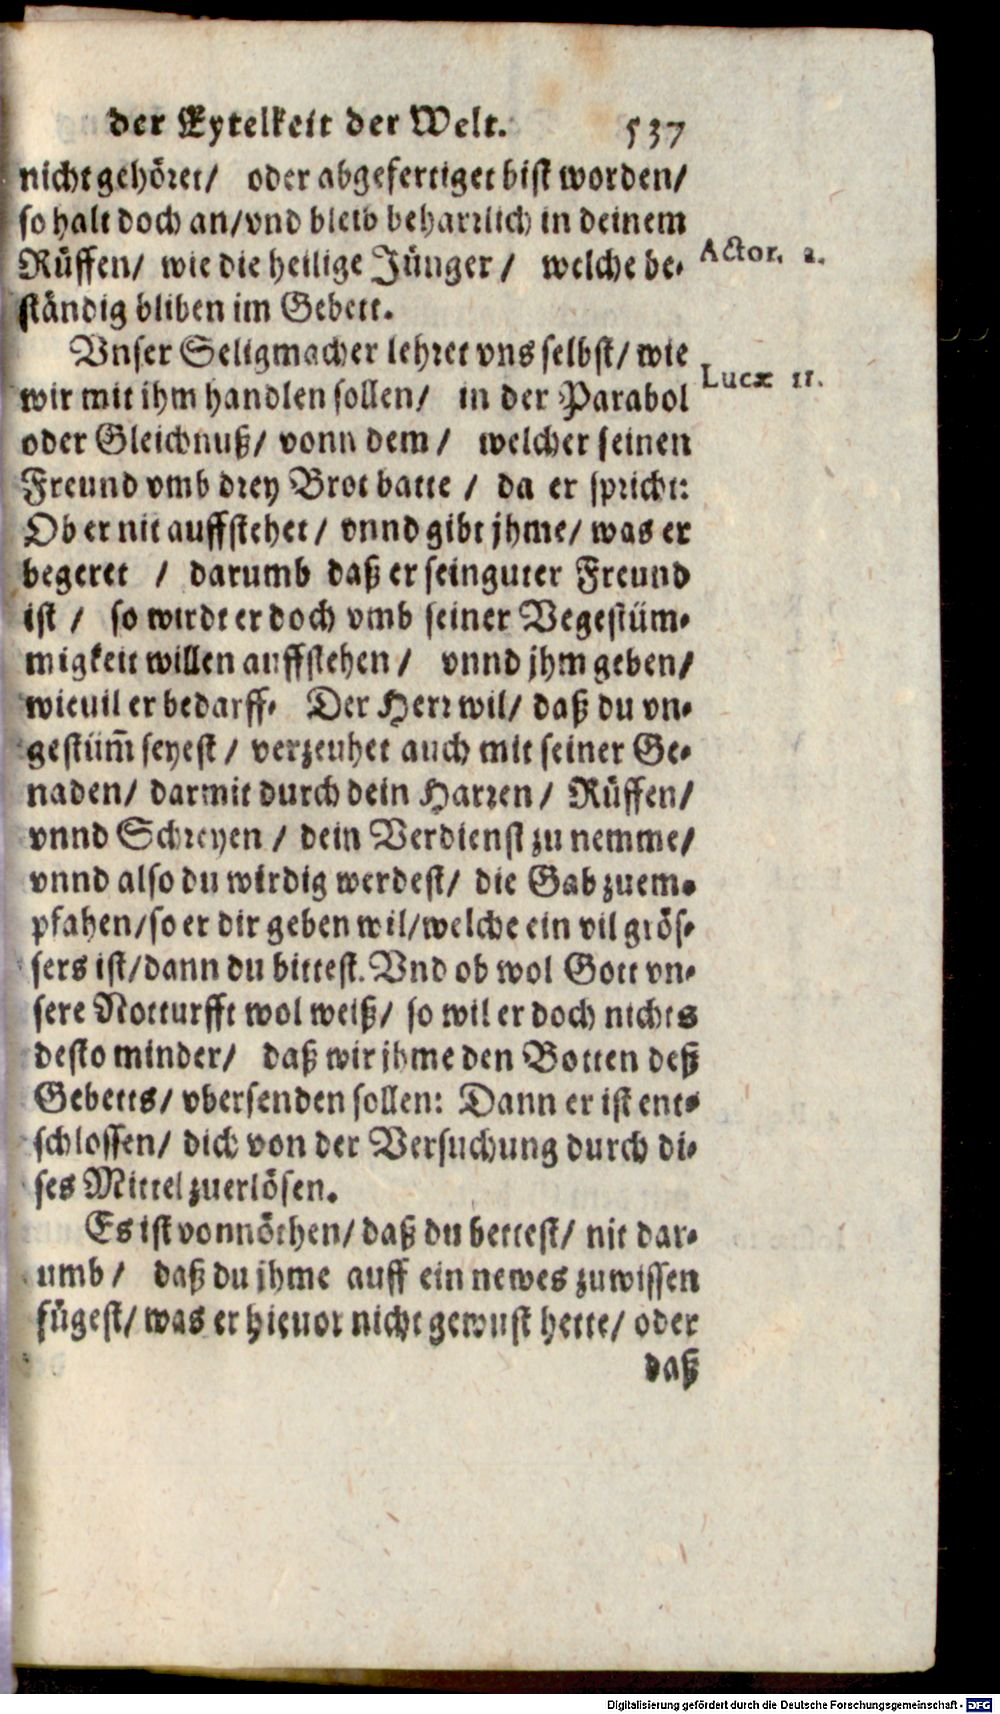 der Eytelkeit der Welt. 537
nicht gehöret/ oder abgefertiget bist worden/
so halt doch an/vnd bleib beharrlich in deinem
Rüffen/ wie die heilige Jünger/ welche be-
Actor. 2.
ständig bliben im Gebett.
Vnser Seligmacher lehret vns selbst/ wie
wir mit ihm handlen sollen/ in der Parabol
Lucæ 11.
oder Gleichnuß/ vonn dem/ welcher seinen
Freund vmb drey Brot batte / da er spricht:
Ob er nit auffstehet/ vnnd gibt jhme/ was er
begeret / darumb daß er sein guter Freund
ist / so wirdt er doch vmb seiner Vegestüm-
migkeit willen auffstehen/ vnnd jhm geben/
wieuil er bedarff. Der Herr wil/ daß du vn-
gestüm̃ seyest/ verzeuhet auch mit seiner Ge-
naden/ darmit durch dein Harren/ Rüffen/
vnnd Schreyen/ dein Verdienst zu nemme/
vnnd also du wirdig werdest/ die Gab zuem-
pfahen/so er dir geben wil/welche ein vil grös-
sers ist/dann du bittest. Vnd ob wol Gott vn-
sere Notturfft wol weiß/ so wil er doch nichts
desto minder/ daß wir jhme den Botten deß
Gebetts/ vbersenden sollen: Dann er ist ent-
schlossen/ dich von der Versuchung durch di-
ses Mittel zuerlösen.
Es ist vonnöthen/ daß du bettest/ nit dar-
umb/ daß du jhme auff ein newes zuwissen
fügest/ was er hieuor nicht gewust hette/ oder
daß
Digitalisierung gefördert durch die Deutsche Forschungsgemeinschaft - DFG